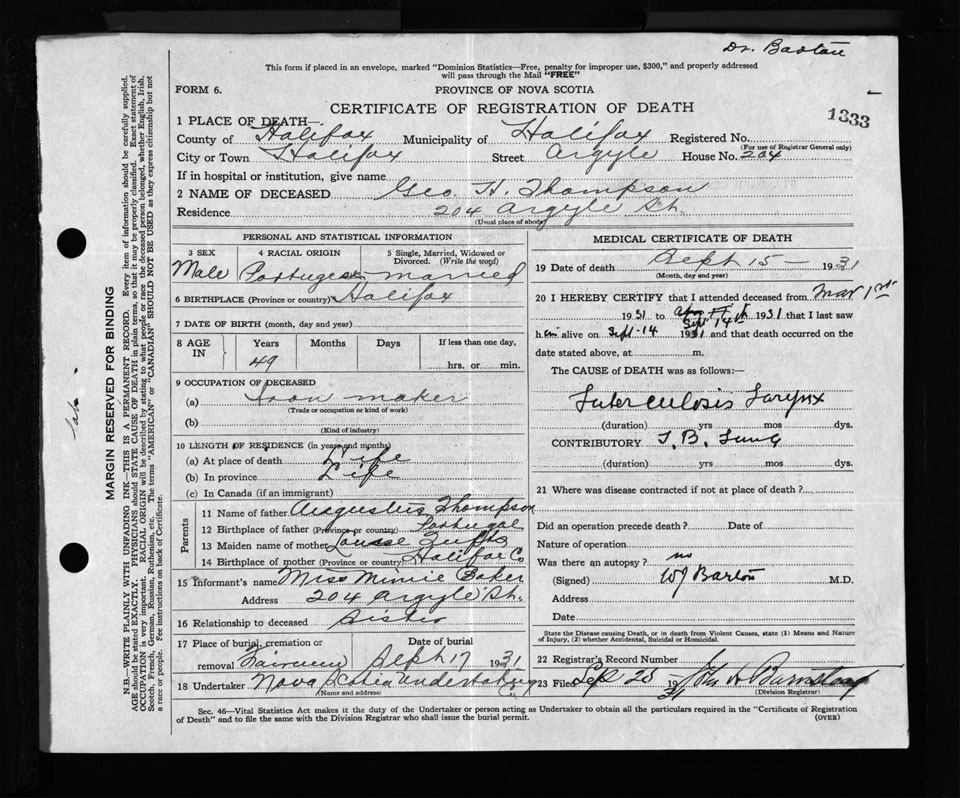 Dr. Barton
This form if placed in an envelope, marked "Dominion Statistics—Free, penalty for improper use, $300," and properly addressed
will pass through the Mail "FREE"
FORM 6.
PROVINCE OF NOVA SCOTIA
CERTIFICATE OF REGISTRATION OF DEATH
1333
1 PLACE OF DEATH—
County of Halifax Municipality of Halifax Registered No.
(For use of Registrar General only)
City or Town Halifax Street Argyle House No. 204
If in hospital or institution, give name
2 NAME OF DECEASED Geo H. Thompson
Residence 204 Argyle St.
(Usual place of abode)
PERSONAL AND STATISTICAL INFORMATION
3 SEX Male
4 RACIAL ORIGIN Portugese
5 Single, Married, Widowed or Divorced. (Write the word) married
6 BIRTHPLACE (Province or country) Halifax
7 DATE OF BIRTH (month, day and year)
8 AGE IN Years 49 Months Days If less than one day, hrs. or min.
9 OCCUPATION OF DECEASED
(a) Iron maker
(Trade or occupation or kind of work)
(b)
(Kind of industry)
10 LENGTH OF RESIDENCE (in years and months)
(a) At place of death Life
(b) In province Life
(c) In Canada (if an immigrant)
Parents
11 Name of father Augustus Thompson
12 Birthplace of father (Province or country) Portugal
13 Maiden name of mother Louise
14 Birthplace of mother (Province or country) Halifax Co
15 Informant's name Miss Minnie Baker
Address 204 Argyle St.
16 Relationship to deceased Sister
17 Place of burial, cremation or removal Fairview Date of burial Sept 17 1931
18 Undertaker Nova Scotia Undertaking Co
(Name and address)
MEDICAL CERTIFICATE OF DEATH
19 Date of death Sept 15 — 1931
(Month, day and year)
20 I HEREBY CERTIFY that I attended deceased from Mar 1st
1931 to Sept 14th 1931 that I last saw
him alive on Sept-14 1931 and that death occurred on the
date stated above, at m.
The CAUSE of DEATH was as follows:—
Tuberculosis Larynx
(duration) yrs mos dys.
CONTRIBUTORY T. B. Lung
(duration) yrs mos dys.
21 Where was disease contracted if not at place of death?
Did an operation precede death? Date of
Nature of operation
Was there an autopsy? no
(Signed) WJ Barton M.D.
Address
Date
State the Disease causing Death, or in death from Violent Causes, state (1) Means and Nature
of Injury, (2) whether Accidental, Suicidal or Homicidal.
22 Registrar's Record Number
23 Filed Sep 25 1931 John A Barnstead
(Division Registrar)
Sec. 46—Vital Statistics Act makes it the duty of the Undertaker or person acting as Undertaker to obtain all the particulars required in the "Certificate of Registration
of Death" and to file the same with the Division Registrar who shall issue the burial permit.
(OVER)
MARGIN RESERVED FOR BINDING
N.B.—WRITE PLAINLY WITH UNFADING INK—THIS IS A PERMANENT RECORD. Every item of information should be carefully supplied.
AGE should be stated EXACTLY. PHYSICIANS should STATE CAUSE OF DEATH in plain terms, so that it may be properly classified. Exact statement of
OCCUPATION is very important. RACIAL ORIGIN will be described by stating to what people or race the deceased person belonged, whether English, Irish,
Scotch, French, German, Russian, Ruthenian, etc. The terms "AMERICAN" or "CANADIAN" SHOULD NOT BE USED as they express citizenship but not
a race or people. See instructions on back of Certificate.